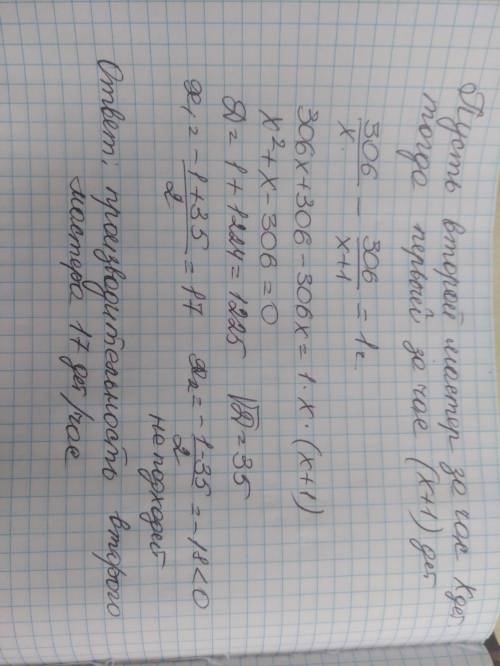 Пусть второй мастер за час x дет
тогда первый за час (x+1) дет
306/x - 306/(x+1) = 1ч
306x+306-306x = 1·x·(x+1)
x²+x-306=0
D = 1+1224=1225 √D = 35
x₁ = (-1+35)/2 = 17 x₂ = (-1-35)/2 = -18<0
не подходит
Ответ: производительность второго
мастера 17 дет/час